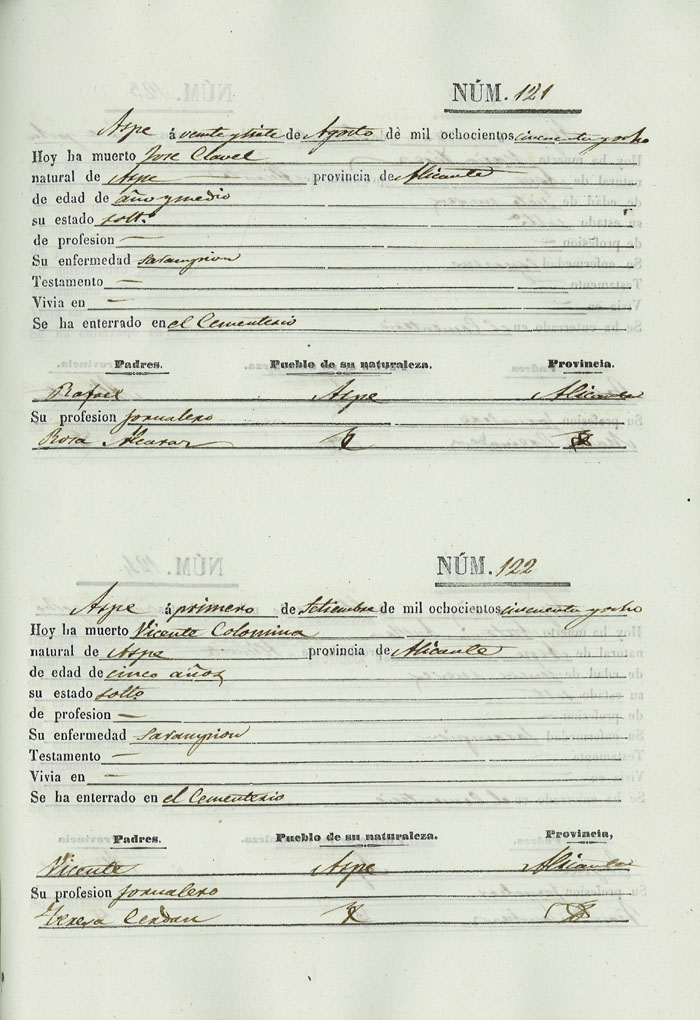 NÚM. 121
Aspe á veinte y siete de Agosto de mil ochocientos cincuenta y ocho
Hoy ha muerto Jose Clavel
natural de Aspe provincia de Alicante
de edad de año y medio
su estado solt.º
de profesion —
Su enfermedad Sarampion
Testamento —
Vivia en —
Se ha enterrado en el Cementerio
Padres. Pueblo de su naturaleza. Provincia.
Rafael Aspe Alicante
Su profesion Jornalero
Rosa Alcaraz
NÚM. 122
Aspe á primero de Setiembre de mil ochocientos cincuenta y ocho
Hoy ha muerto Vicente Colomina
natural de Aspe provincia de Alicante
de edad de cinco años
su estado solto
de profesion —
Su enfermedad Sarampion
Testamento —
Vivia en —
Se ha enterrado en el Cementerio
Padres. Pueblo de su naturaleza. Provincia,
Vicente Aspe Alicante
Su profesion Jornalero
Teresa Cerdan